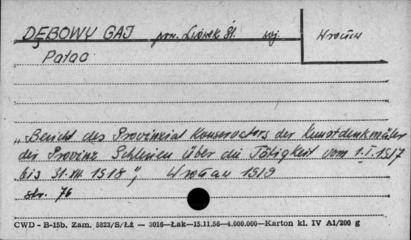 DĘBOWY GAJ pow. Lwówek Śl. woj. Wrocław
Pałac
"Bericht des Provinzial Konservators der Kunstdenkmäler
der Provinz Schlesien über die Tätigkeit vom 1.I.1917
bis 31.XII 1918", Wrocław 1919
str. 76
CWD - B-15b. Zam. 5823/S/Łź — 3016—Łak—15.11.56—4.000.000—Karton kl. IV A1/200 g